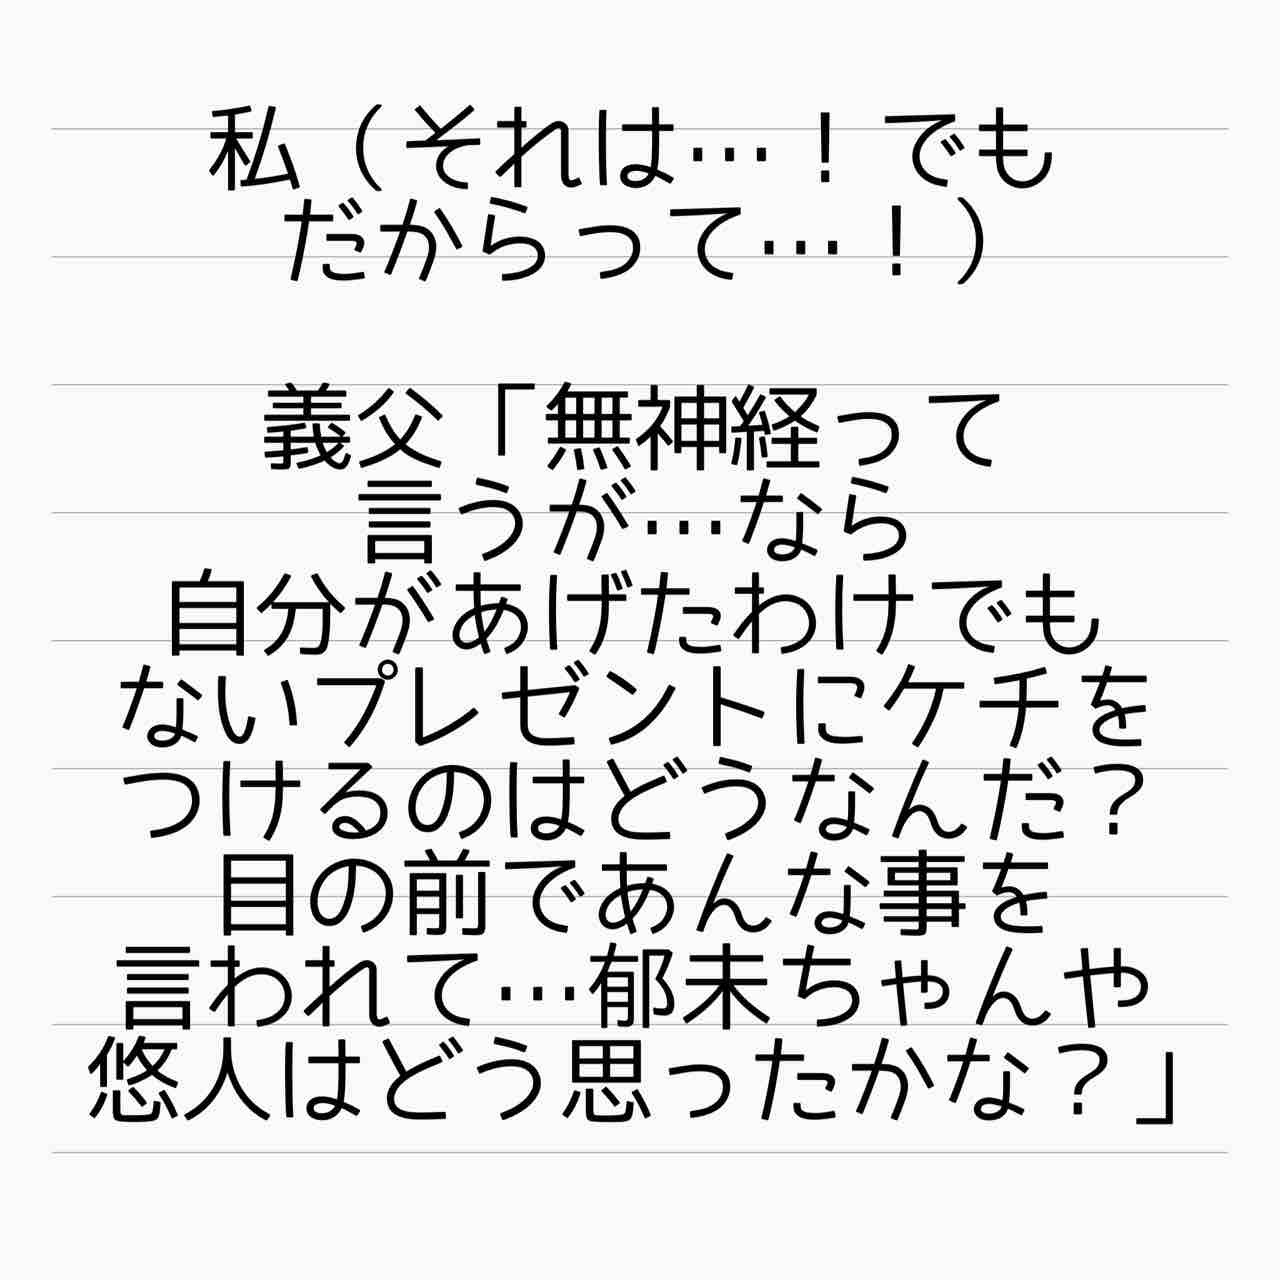 私（それは…！でも
だからって…！）
義父「無神経って
言うが…なら
自分があげたわけでも
ないプレゼントにケチを
つけるのはどうなんだ？
目の前であんな事を
言われて…郁未ちゃんや
悠人はどう思ったかな？」